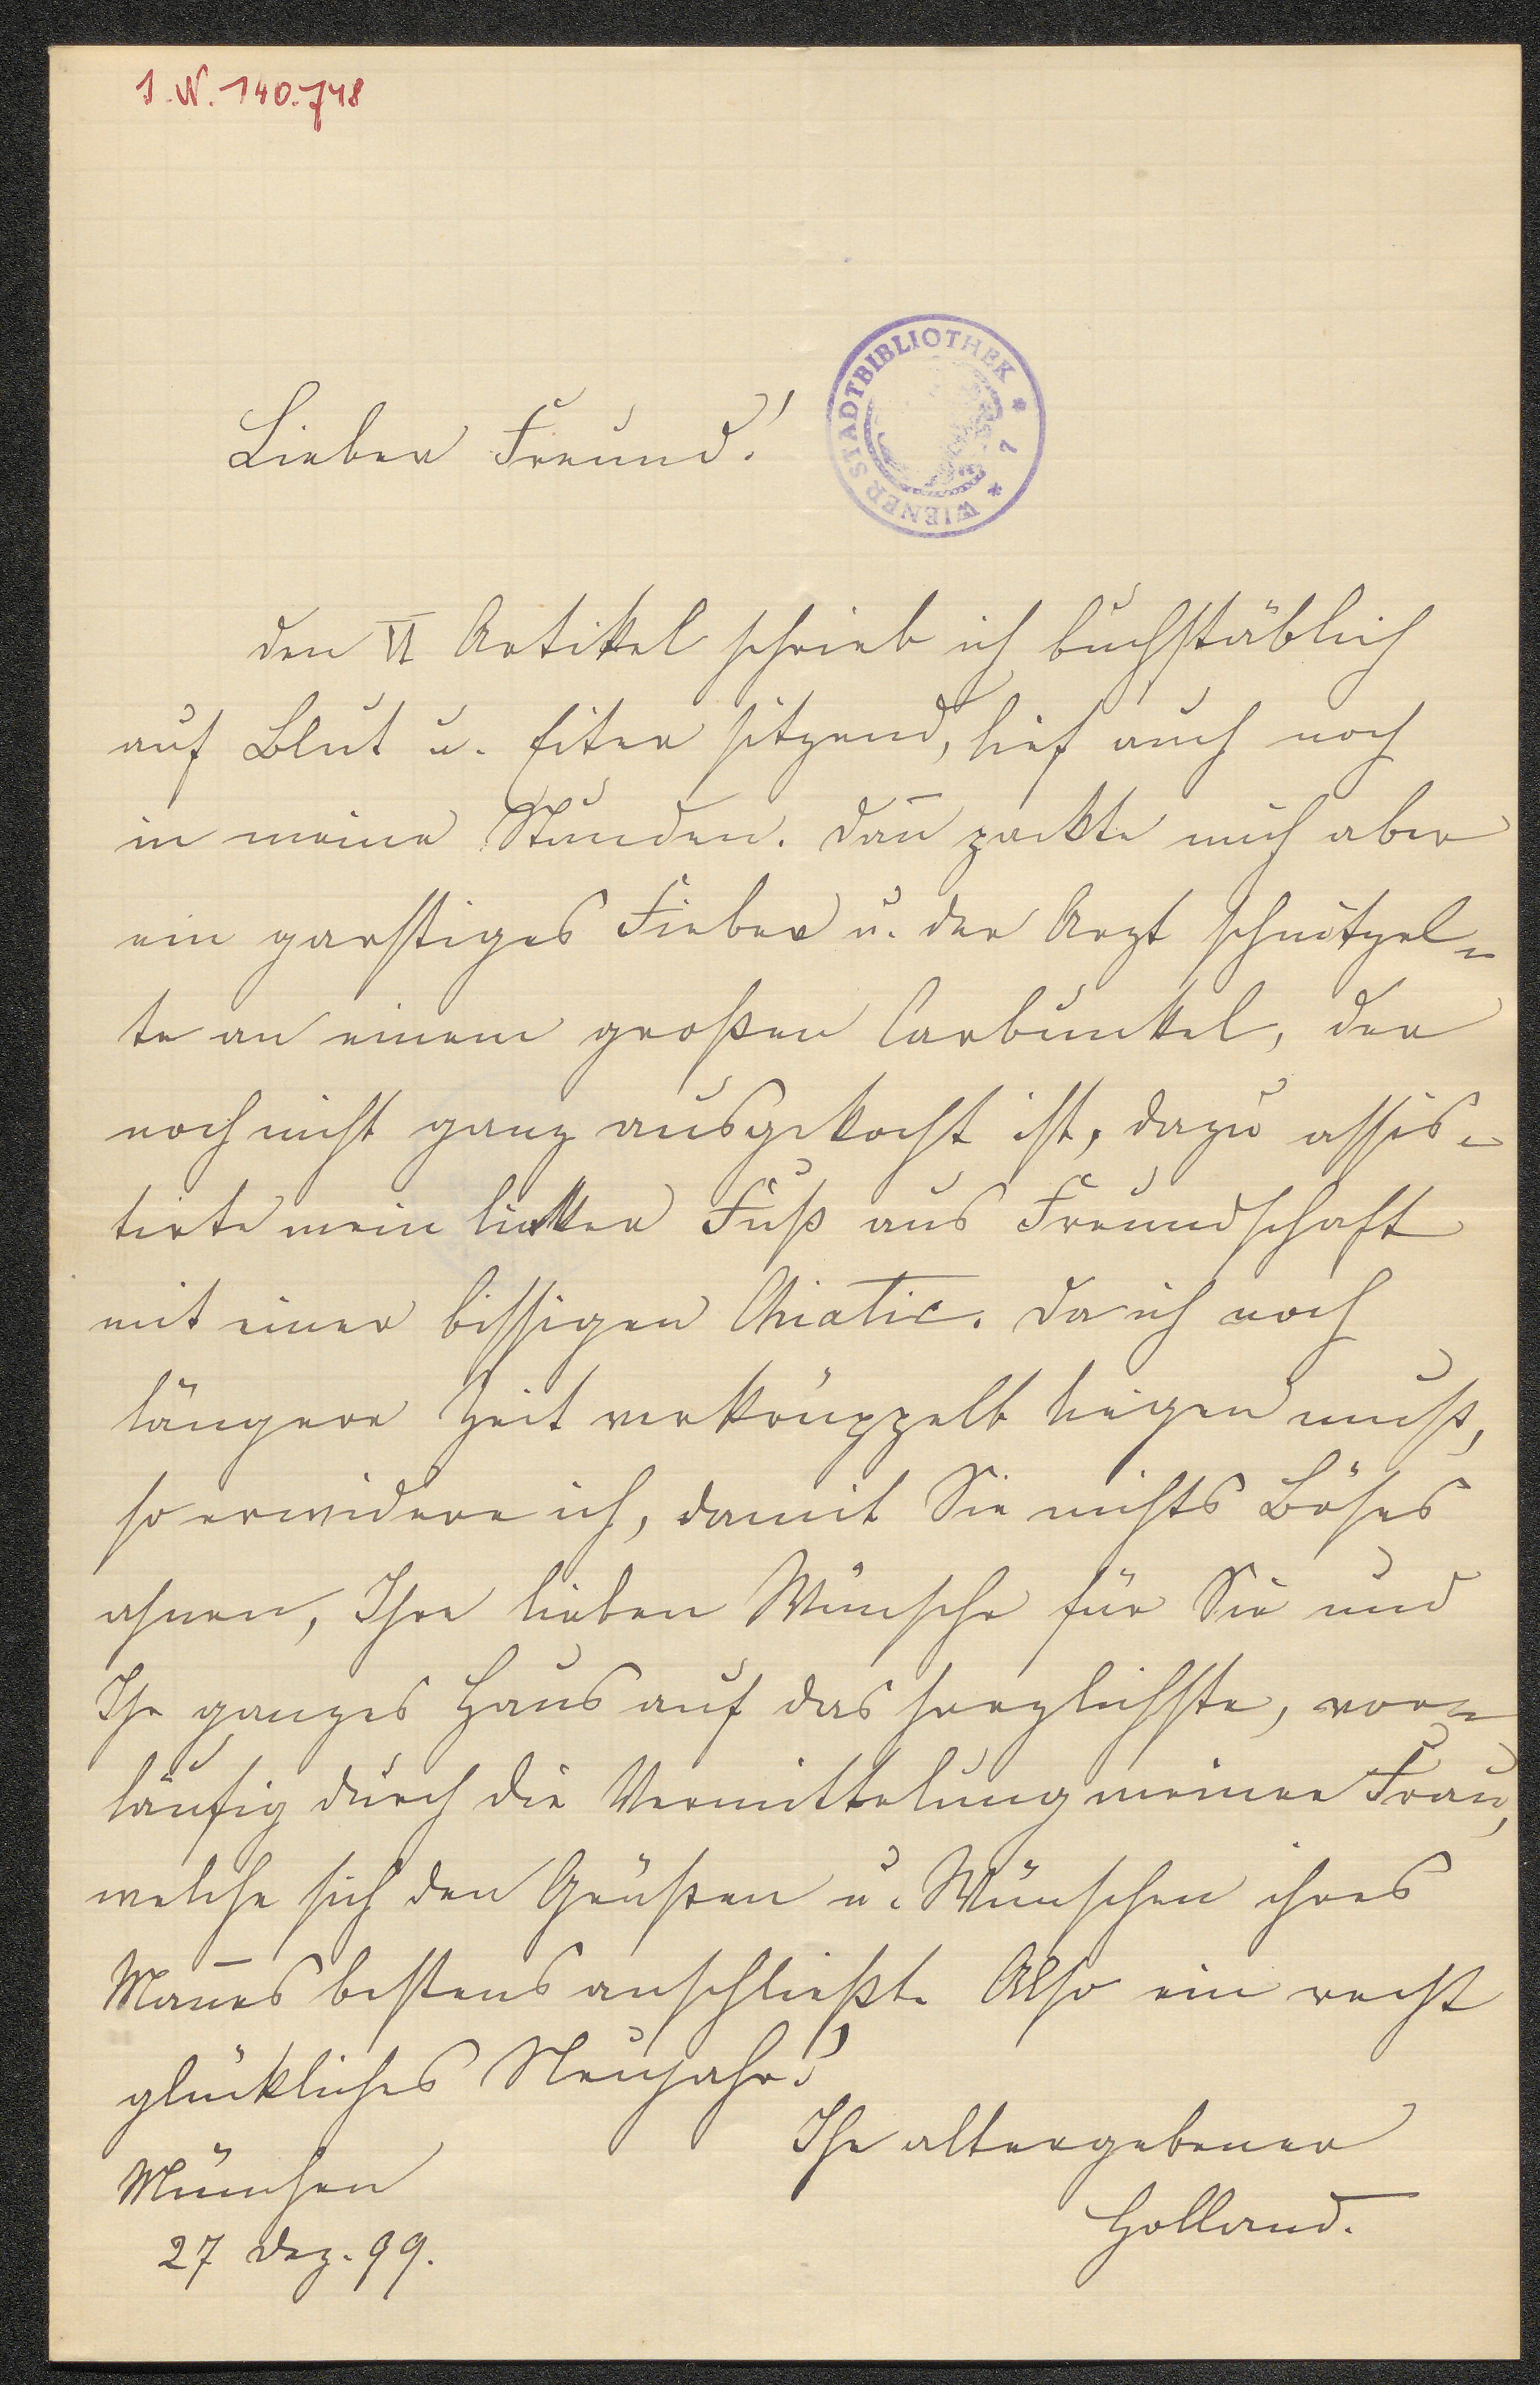 I.N. 140.748
WIENER STADTBIBLIOTHEK * 1 *
Lieber Freund!
den VI Artikel schrieb ich buchstäblich
auf Blut u. Eiter sitzend, lief auch noch
in meine Stunden. Dan̄ packte mich aber
ein garstiges Fieber u. der Arzt schnitzel-
te an einem großen Carbunkel, der
noch nicht ganz ausgekocht ist, dazu assis-
tirte mein linker Fuß aus Freundschaft
mit einer bissigen . Da ich noch
längere Zeit verkrüppelt liegen muß,
so erwidere ich, damit Sie nichts Böses
ahnen, Ihre lieben Wünsche für Sie und
Ihr ganzes Haus auf das herzlichste, vor-
läufig durch die Vermittelung meiner Frau,
welche sich den Grüßen u. Wünschen ihres
Man̄es bestens anschließt. Also ein recht
glückliches Neujahr!
Ihr altergebener
Holland.
München
27 Dez. 99.